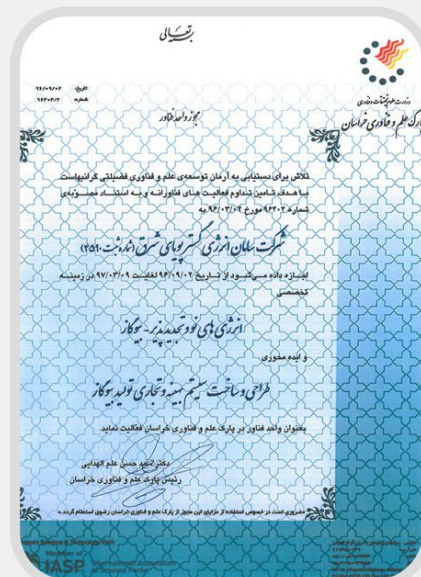 بسمه تعالی
وزارت علوم، تحقیقات و فناوری
پارک علم و فناوری خراسان
تاریخ: ۹۶/۰۹/۰۲
شماره: ۹۶۴۰۳/۲
مجوز واحد فناور
تلاش برای دستیابی به آرمان توسعه‌ی علم و فناوری فضیلتی گرانبهاست.
با هدف تامین تداوم فعالیت های فناورانه و به استناد مصوبه‌ی
شماره ۹۶۴۰۲ مورخ ۹۶/۰۳/۰۹ به
شرکت سامان انرژی گستر پویای شرق (شماره ثبت ۴۵۹۰)
اجازه داده می‌شود از تاریخ ۹۶/۰۹/۰۲ لغایت ۹۷/۰۳/۰۹ در زمینه
تخصصی
انرژی های نو و تجدید پذیر - بیوگاز
و ایده محوری
طراحی و ساخت سیستم بهینه و تجاری تولید بیوگاز
بعنوان واحد فناور در پارک علم و فناوری خراسان فعالیت نماید.
دکتر سید حسن علم الهدایی
رئیس پارک علم و فناوری خراسان
ضروری است در خصوص استفاده از مزایای این مجوز از پارک علم و فناوری خراسان رضوی استعلام گردد.
Science & Technology Park
Member of
IASP International Association
of Science Parks